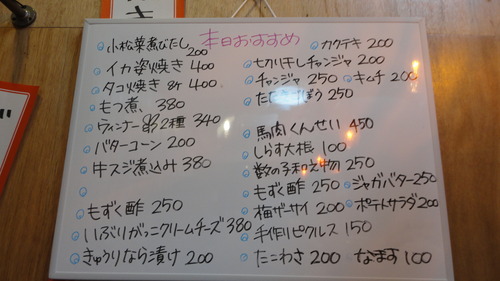 本日おすすめ
小松菜煮びたし 200
イカ姿焼き 400
タコ焼き 8ケ 400
もつ煮 380
ウィンナー 2種 340
バターコーン 200
牛スジ煮込み 380
もずく酢 250
いぶりがっこクリームチーズ 380
きゅうりなら漬け 200
カクテキ 200
切り干しチャンジャ 200
チャンジャ 250 キムチ 200
ごぼう 250
馬肉くんせい 450
しらす大根 100
数の子和え物 250
もずく酢 250 ジャガバター 250
梅ザーサイ 200 ポテトサラダ 200
手作りピクルス 150
たこわさ 200 なます 100